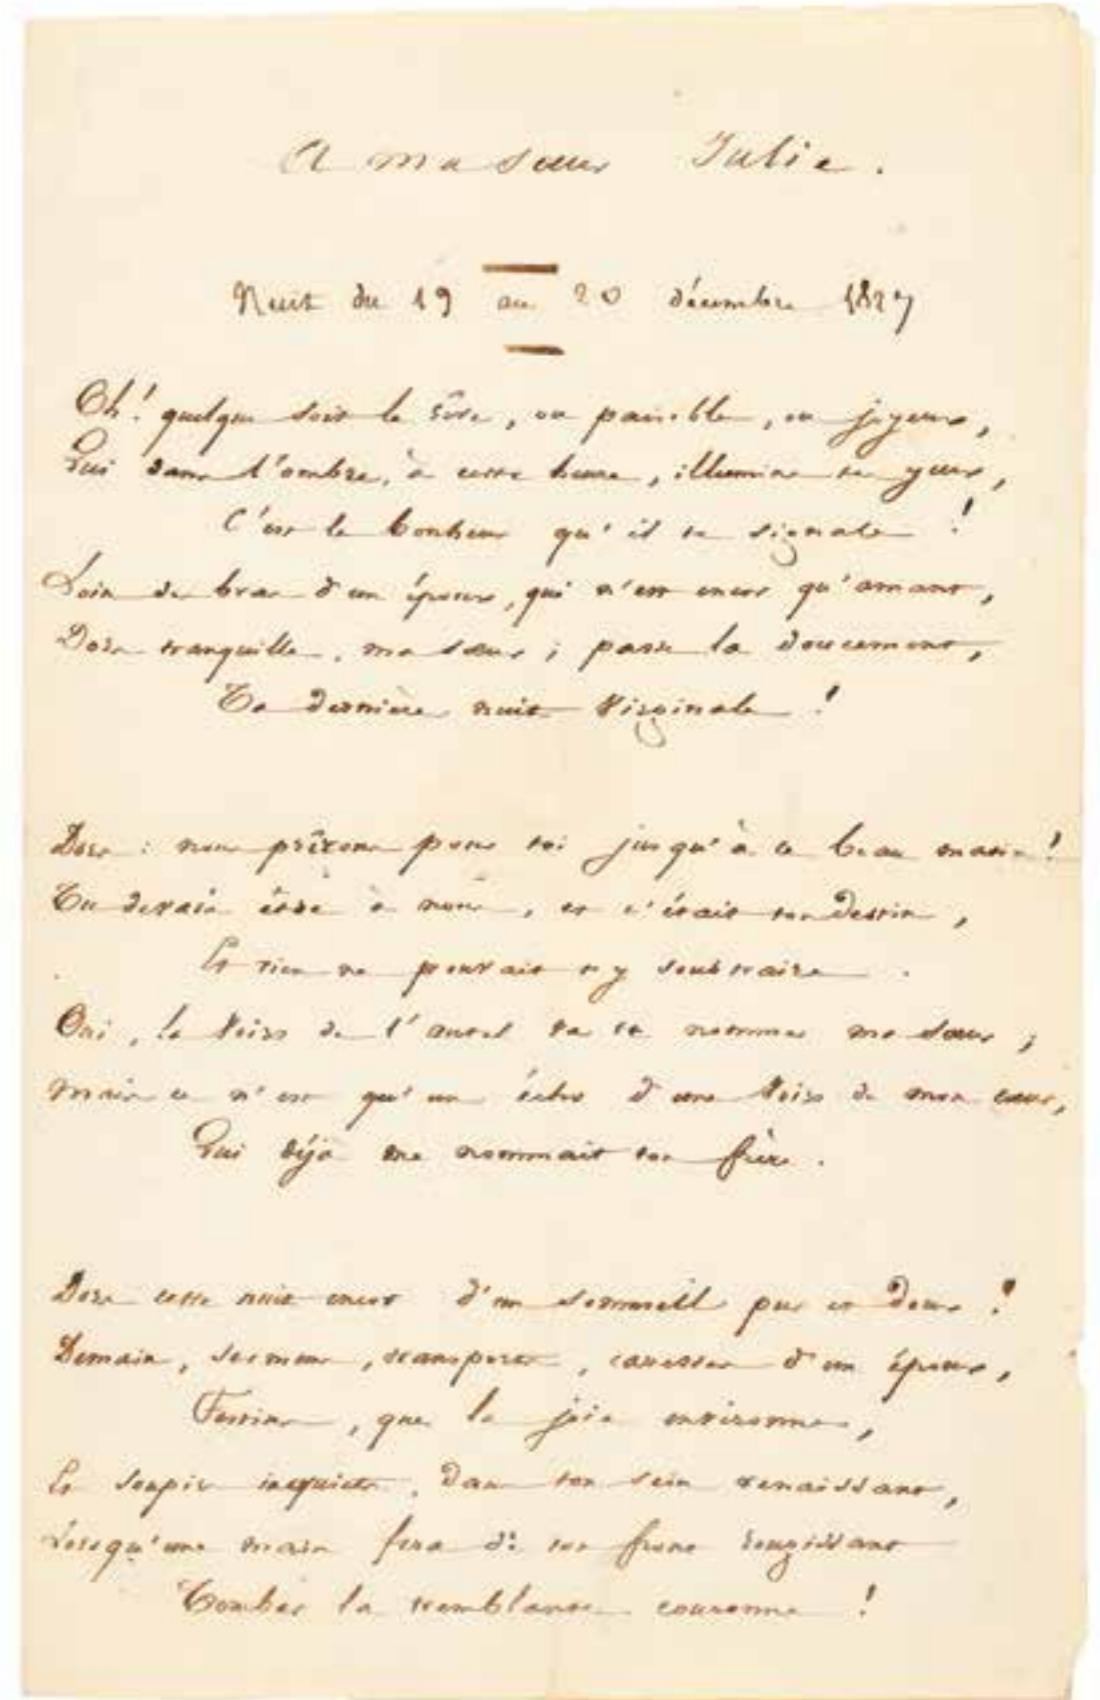 A ma sœur Julie.
Nuit du 19 au 20 décembre 1827
Oh! quelque soit le rêve, ou paisible, ou joyeux,
Qui dans l'ombre, à cette heure, illumine tes yeux,
C'est le bonheur qu'il te signale !
Loin des bras d'un époux, qui n'est encor qu'amant,
Dors tranquille, ma sœur ; passe la doucement,
Ta dernière nuit virginale !
Dors : nous prîrons pour toi jusqu'à ce beau matin !
Tu devais être à nous, et c'était ton destin,
Et rien ne pouvait t'y soustraire.
Oui, la voix de l'autel va te nommer ma sœur ;
Mais ce n'est qu'un écho d'une voix de mon cœur,
Qui déjà me nommait ton frère.
Dors cette nuit encor d'un sommeil pur et doux !
Demain, serments, transports, caresses d'un époux,
Festins, que la joie environne,
Et soupirs inquiets dans ton sein renaissant,
Lorsqu'une main fera de ton front rougissant
Tomber la tremblante couronne !